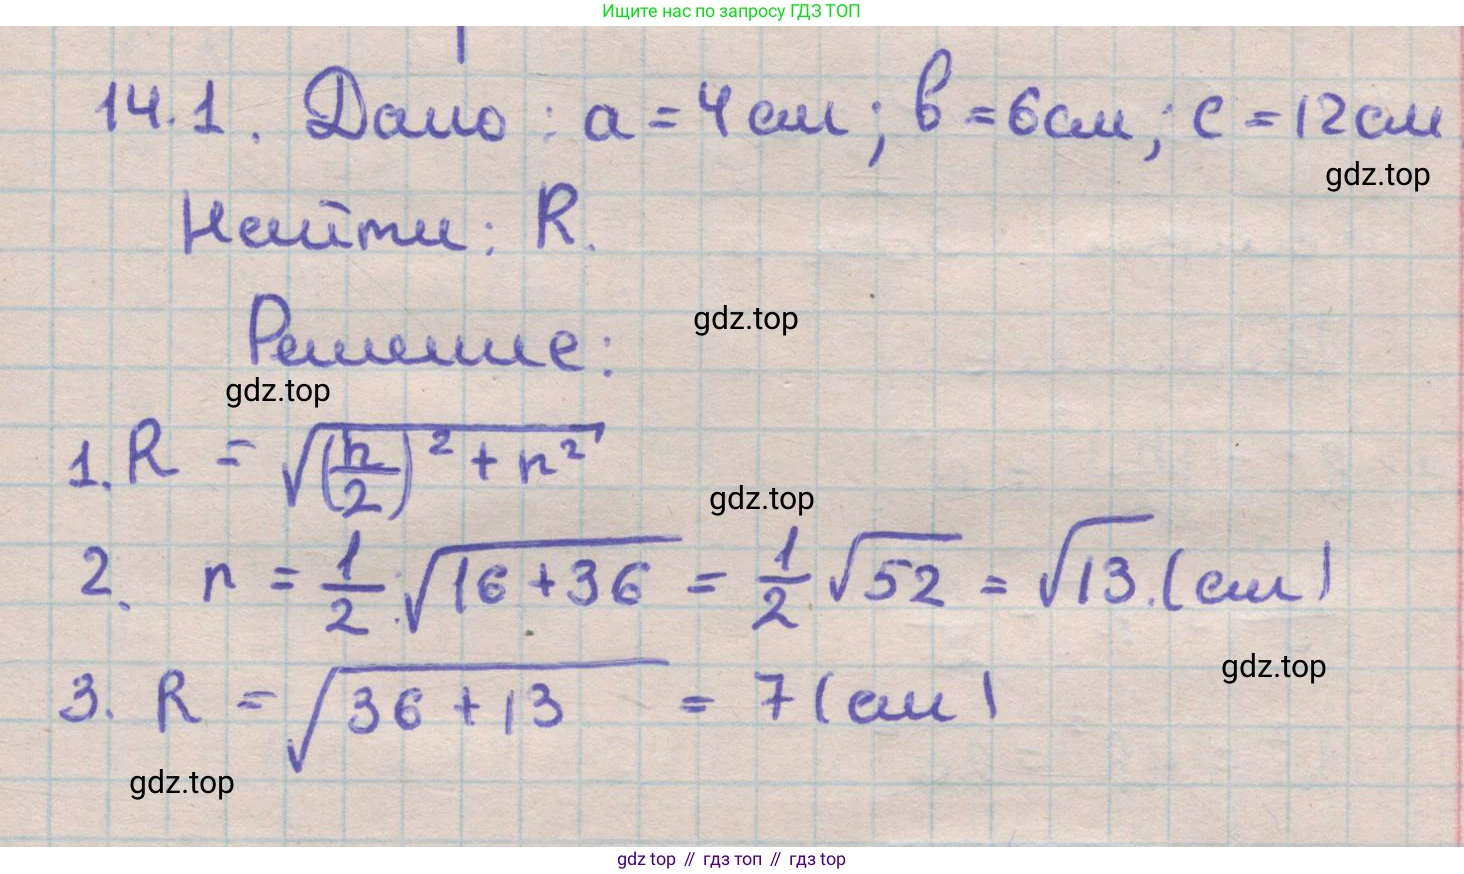 Ищите нас по запросу ГДЗ ТОП
14.1. Дано: a = 4 см; b = 6 см; c = 12 см
gdz.top
Найти: R.
gdz.top
Решение:
gdz.top
1. R = √((h/2)² + r²)
gdz.top
2. r = 1/2 · √(16 + 36) = 1/2 √52 = √13 (см)
gdz.top
3. R = √(36 + 13) = 7 (см)
gdz.top
gdz top // гдз топ // гдз top